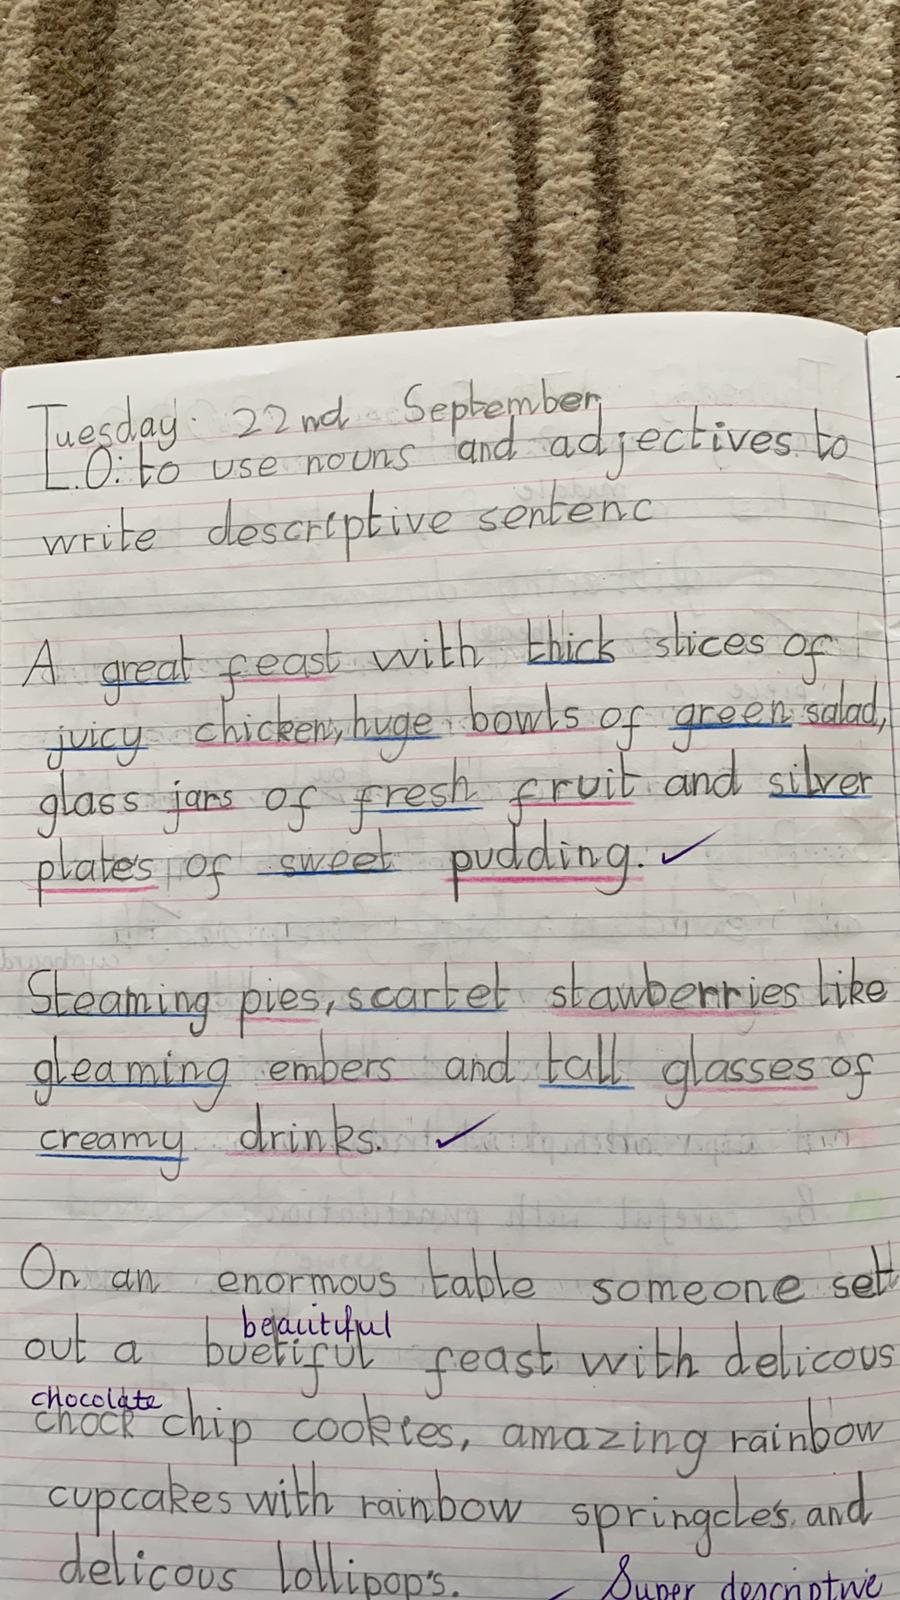 Tuesday. 22nd September
L.O: to use nouns and adjectives to
write descriptive sentenc
A great feast with thick slices of
juicy chicken, huge bowls of green salad,
glass jars of fresh fruit and silver
plates of sweet pudding. ✓
Steaming pies, scarlet stawberries like
gleaming embers and tall glasses of
creamy drinks. ✓
On an enormous table someone set
beautiful
out a buetiful feast with delicous
chocolate
chock chip cookies, amazing rainbow
cupcakes with rainbow springcles and
delicous lollipop's.
Super descriptive